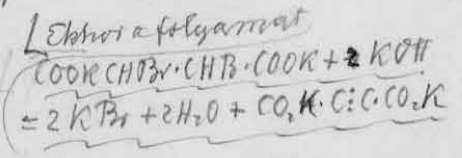 Ekkor a folyamat
COOK CHBr·CHB·COOK + 2 KOH
= 2 KBr + 2H₂O + CO₂K·C⫶C·CO₂K